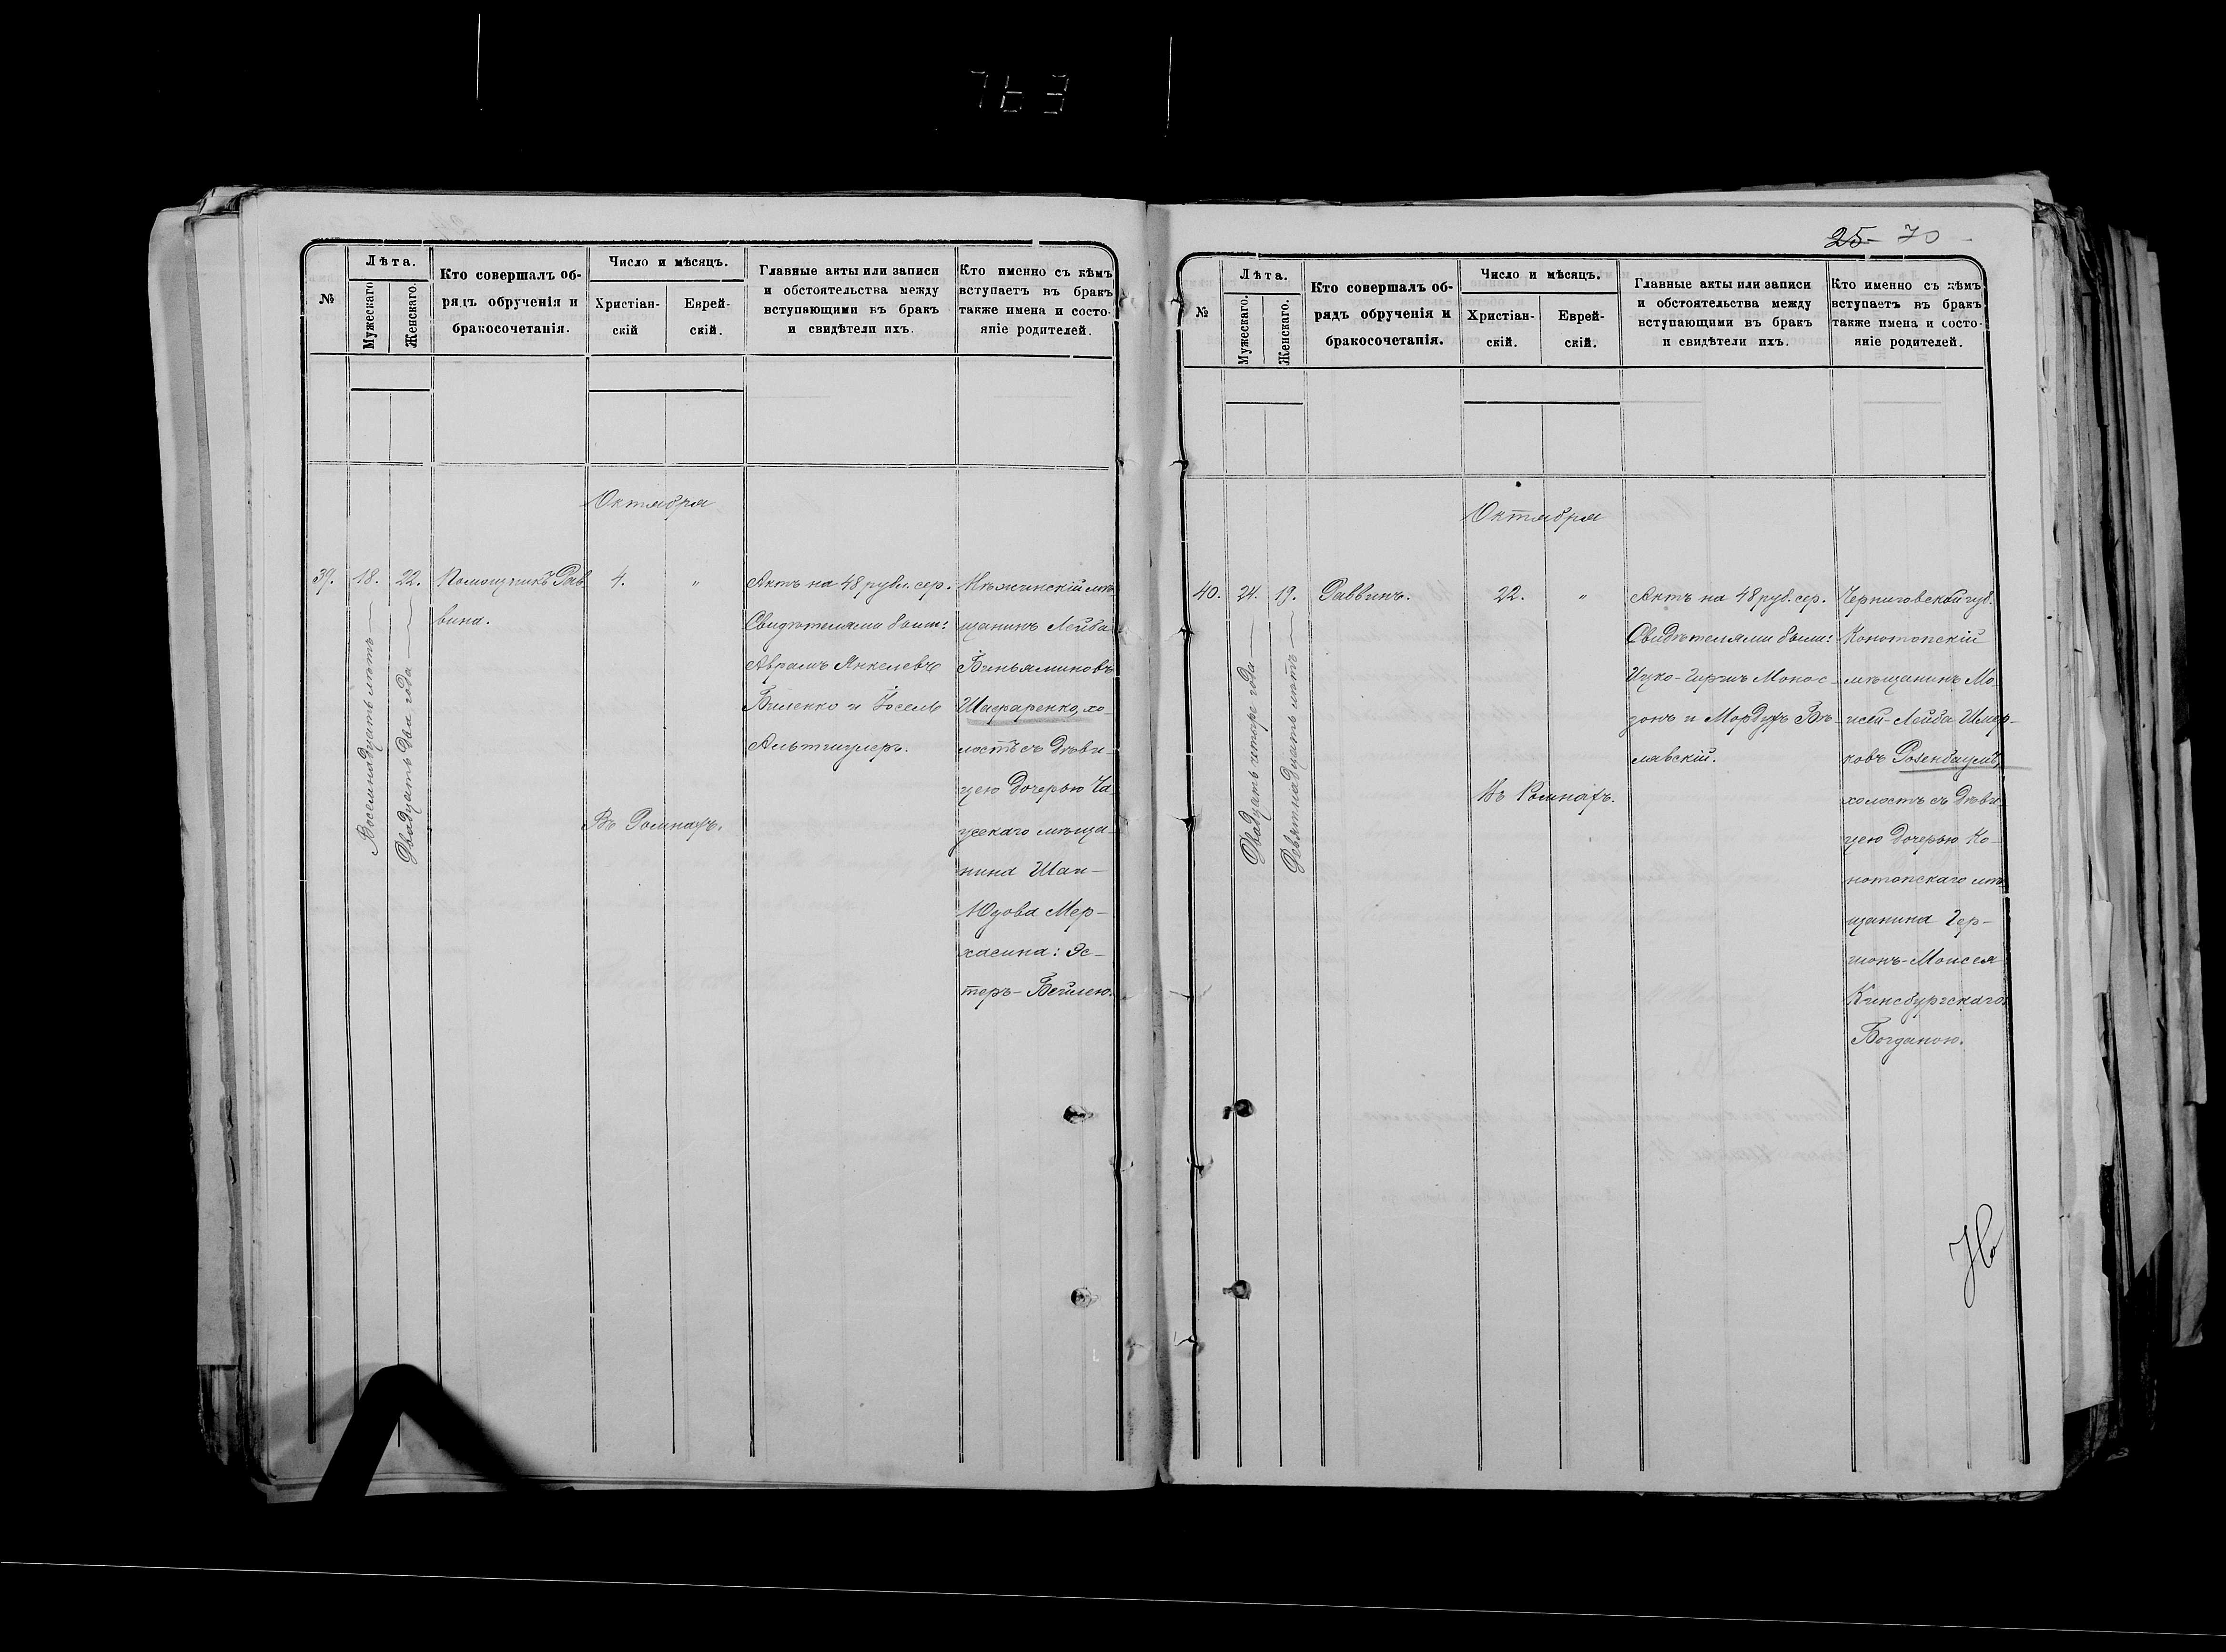 25 70
№
Лѣта.
Мужескаго
Женскаго.
Кто совершалъ об-
рядъ обрученія и
бракосочетанія.
Число и мѣсяцъ.
Христіан-
скій
Еврей-
скій.
Главные акты или записи
и обстоятельства между
вступающими въ бракъ
и свидѣтели ихъ.
Кто именно съ кѣмъ
вступаетъ въ бракъ
также имена и состо-
яніе родителей.
Октября
39.
18.
Восемнадцать лѣтъ
22.
Двадцать два года
Помощникъ Рав
вина.
4.
"
Въ Ромнахъ.
Актъ на 48 рубл. сер.
Свидѣтелями были:
Аврамъ Янкелевъ
Биленко и Іосель
Альтшулеръ.
Нѣжинскій мѣ
щанинъ Лейба
Биньяминовъ
Шафаренко, хо-
лостъ съ дѣви-
цею дочерью Ча
усскаго мѣща-
нина Шаи-
Юдова Мер-
хасина: Эс-
теръ-Бейлею.
№
Лѣта.
Мужескаго.
Женскаго.
Кто совершалъ об-
рядъ обрученія и
бракосочетанія.
Число и мѣсяцъ.
Христіан-
скій.
Еврей-
скій.
Главные акты или записи
и обстоятельства между
вступающими въ бракъ
и свидѣтели ихъ.
Кто именно съ кѣмъ
вступаетъ въ бракъ
также имена и состо-
яніе родителей.
Октября
40.
24.
Двадцать четыре года
19.
Девятнадцать лѣтъ
Раввинъ.
22.
"
Въ Ромнахъ.
Актъ на 48 руб. сер.
Свидѣтелями были:
Ицко-Гиршъ Монос-
зонъ и Мордухъ Бѣ-
лявскій.
Черниговской губ.
Конотопскій
мѣщанинъ Мо-
исей-Лейба Шмер-
ковъ Розенбаумъ,
холостъ съ дѣви
цею дочерью Ко-
нотопскаго мѣ
щанина Гер-
шонъ-Моисея
Кинсбургскаго
Богданою.